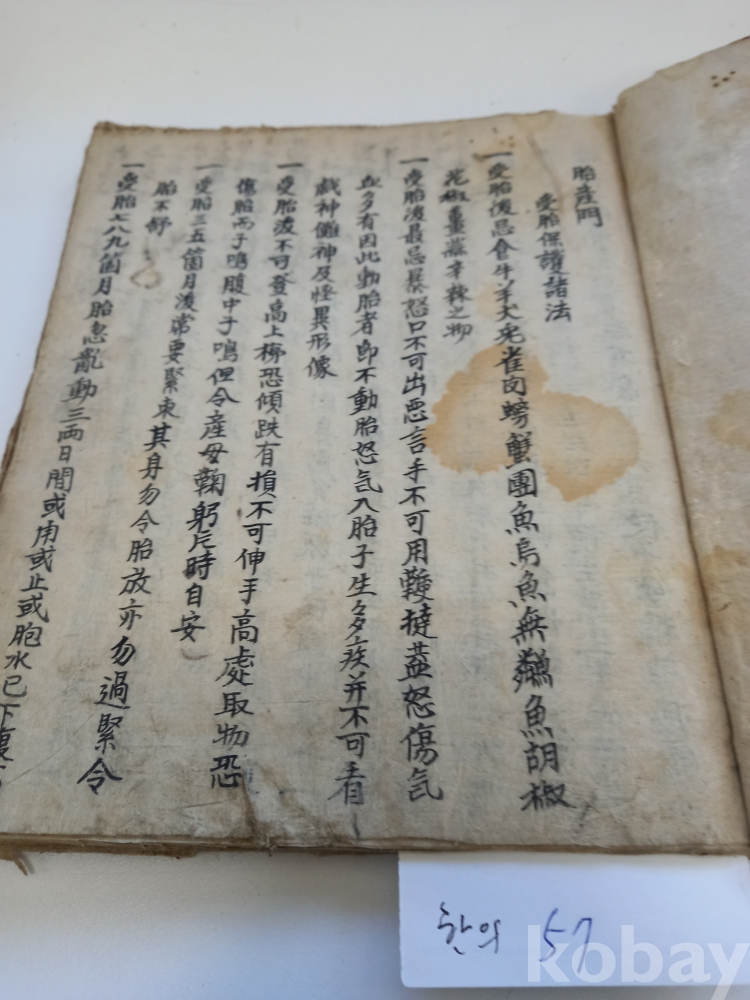 胎産門
受胎保護諸法
一受胎後忌食牛羊犬兎雀肉螃蟹團魚烏魚無鱗魚胡椒
花椒薑蒜辛辣之物
一受胎後最忌暴怒口不可出惡言手不可用鞭撻盖怒傷气
血多有因此動胎者即不動胎怒气入胎子生多疾并不可看
戯神儺神及怪異形像
一受胎後不可登高上梯恐傾跌有損不可伸手高處取物恐
傷胎而子鳴腹中子鳴但令産母鞠躬片時自安
一受胎三五箇月後常要緊束其身勿令胎放亦勿過緊令
胎不舒
一受胎七八九箇月胎忽亂動三兩日間或痛或止或胞水已下
한의 57
kobay